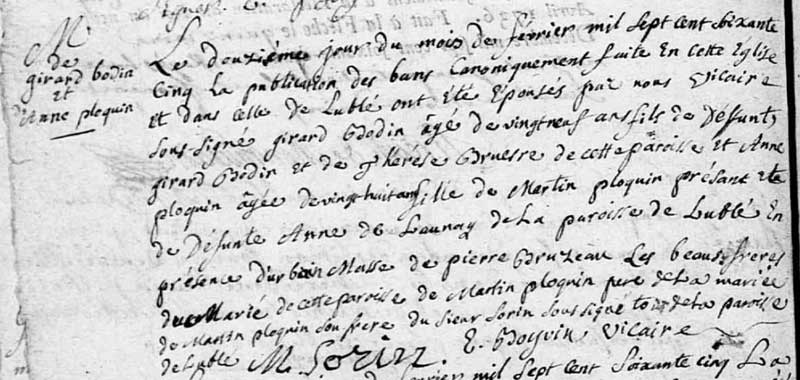 M.
de
girard bodin
et
d'Anne ploquin
Le deuxiéme jour du mois de fevrier mil sept cent soixante
Cinq La publication des bans Canoniquement faite En cette Eglise
Et dans celle de Lublé ont eté Epousés par nous Vicaire
Soussigné girard Bodin âgé de vingtneuf ans fils de Défunts
girard Bodin Et de thérése Gruesre de cette paroisse Et Anne
ploquin âgée de vingt huit ans fille de Martin ploquin présant Et
de Défunte Anne de Launay de La paroisse de Lublé En
présence d'urbain Masse de pierre Bruzeau Les beaus freres
du Marié de cette paroisse de Martin ploquin pere de La mariée
de Martin ploquin son frere du Sieur Sorin soussigné de La paroisse
de Lublé M. Sorin. Vicaire
fevrier mil sept cent soixante cinq La